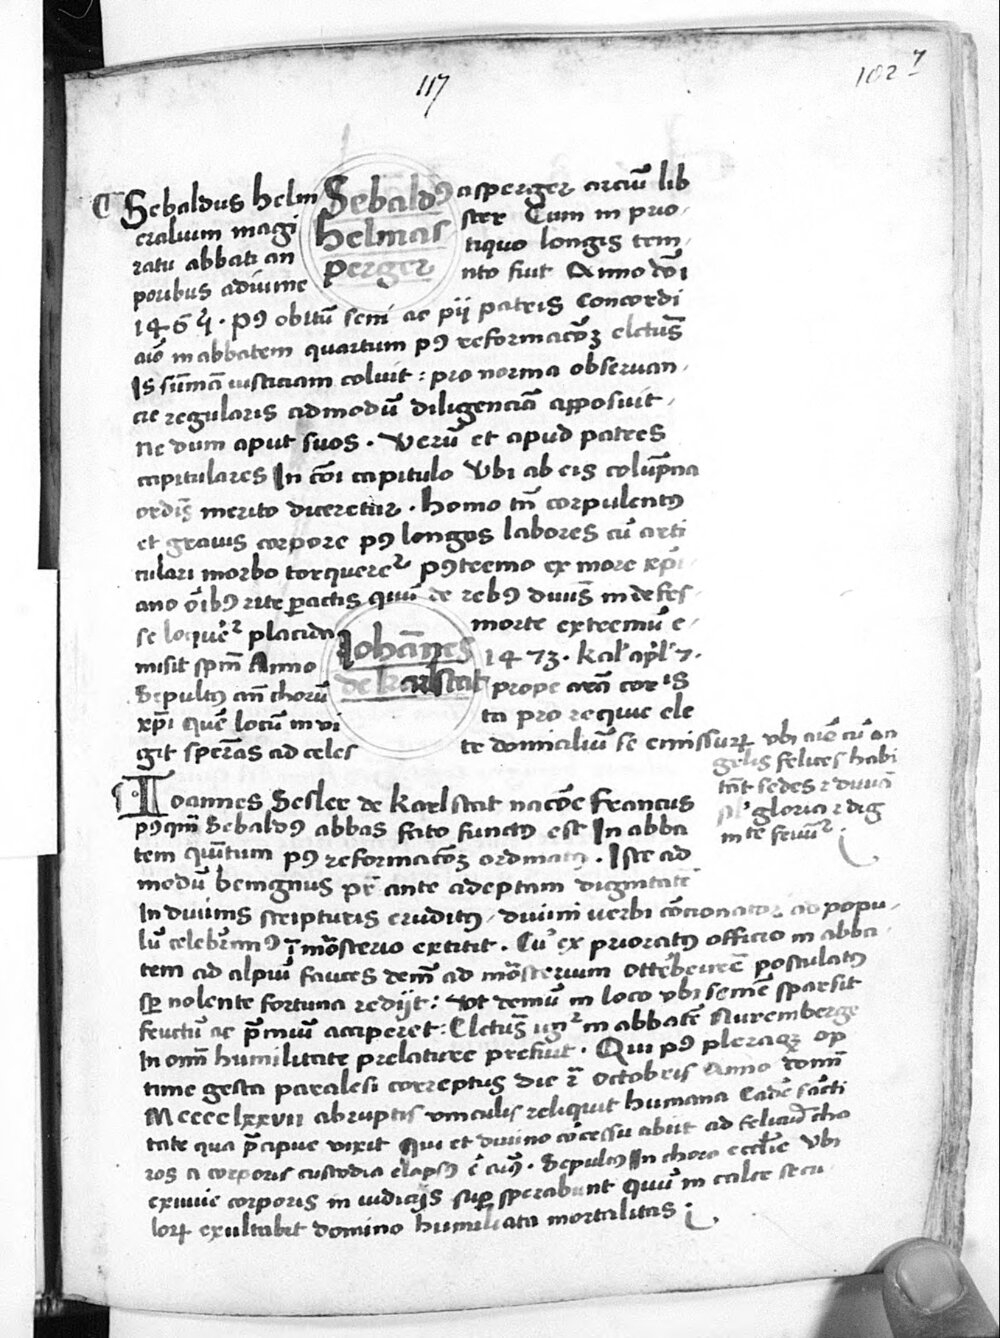 117
102
Sebaldus helm Sebaldꝯ asperger arciū lib
eralium magi helmas ster Cum in prio
ratu abbati an perger tiquo longis tem
poribus adiunc nto fuit Anno dn̄i
pꝯ obitū seni ac pij patris Concordi
aīe in abbatem quartum pꝯ reformacōꝫ electus
Is sum̄ā iusticiam coluit : pro norma observan
cie regularis admodū diligenciā apposuit
Ne dum aput suos . Verū et apud patres
capitulares In cōi capitulo Vbi ab eis colūpna
ordīs merito diceretur . homo tn̄ corpulentꝯ
et gravis corpore pꝯ longos labores cū arti
culari morbo torqueret pꝯtremo ex more xp̄i
ano oībꝯ rite peractis de rebꝯ divīs indefes
se loquēt placida Johānes morte extremū e
misit spm̄ Anno de karlstat 1473 . kal' apl'
Sepultꝯ an̄ chorū prope
xp̄i quē locū in vi ta pro requie ele
git sperās ad celes te domiciliū se emissurꝫ vbi cū an
gelis felices habi
tāt sedes
gloria
Ioannes Sesler de karlstat nacōe francus
pꝯqm̄ Sebaldꝯ abbas fato functꝯ est In abba
tem quītum pꝯ reformacōꝫ ordinatꝯ . Iste ad
modū benignus ante adeptam dignitatē
In divinis scripturis eruditꝯ, divini verbi cōcionator ad popu
lū celeberrimꝯ ī mōsterio extitit . Cū ex prioratꝯ officio in abba
tem ad alpiū fauces dem̄ ad mōsterium Ottēbeirē postulatꝯ
nolente fortuna redijt : Vt demū in loco vbi semē sparsit
fructū ac p̄miū acciperet : Electus in abbatē Nuremberge
In omī humilitate prelature prefuit . Qui pꝯ pleraqꝫ op
time gesta paralesi correptus die Octobris Anno domī
Mcccclxxvii abruptis vinculis reliquit humana Eadē sācti
tate qua p̄cipue vixit Qui et divino cōcessu abiit ad felicium cho
ros a corporis custodia elapsꝯ . Sepultꝯ In choro ecclīe Vbi
exuvie corporis in iudicijs sperabunt in calce secu
lorꝫ exultabit domino humiliata mortalitas